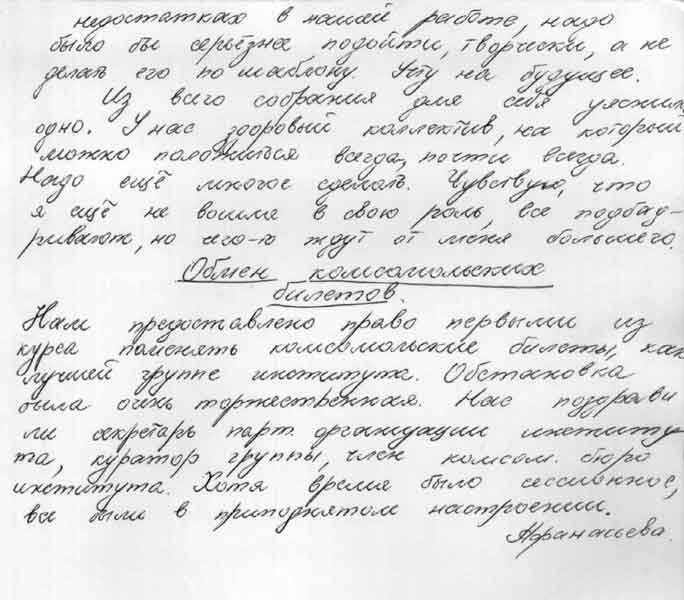 недостатках в нашей работе, надо
было бы серьёзнее подойти, творчески, а не
делать его по шаблону. Учту на будущее.
Из всего собрания для себя уяснила
одно. У нас здоровый коллектив, на который
можно положиться всегда, почти всегда.
Надо ещё многое сделать. Чувствую, что
я ещё не вошла в свою роль, все подбад-
ривают, но чего-то ждут от меня большего.
Обмен комсомольских
билетов.
Нам предоставлено право первыми из
курса поменять комсомольские билеты, как
лучшей группе института. Обстановка
была очень торжественная. Нас поздрави
ли секретарь парт. организации институ
та, куратор группы, член комсом. бюро
института. Хотя время было сессионное,
все были в приподнятом настроении.
Афанасьева.